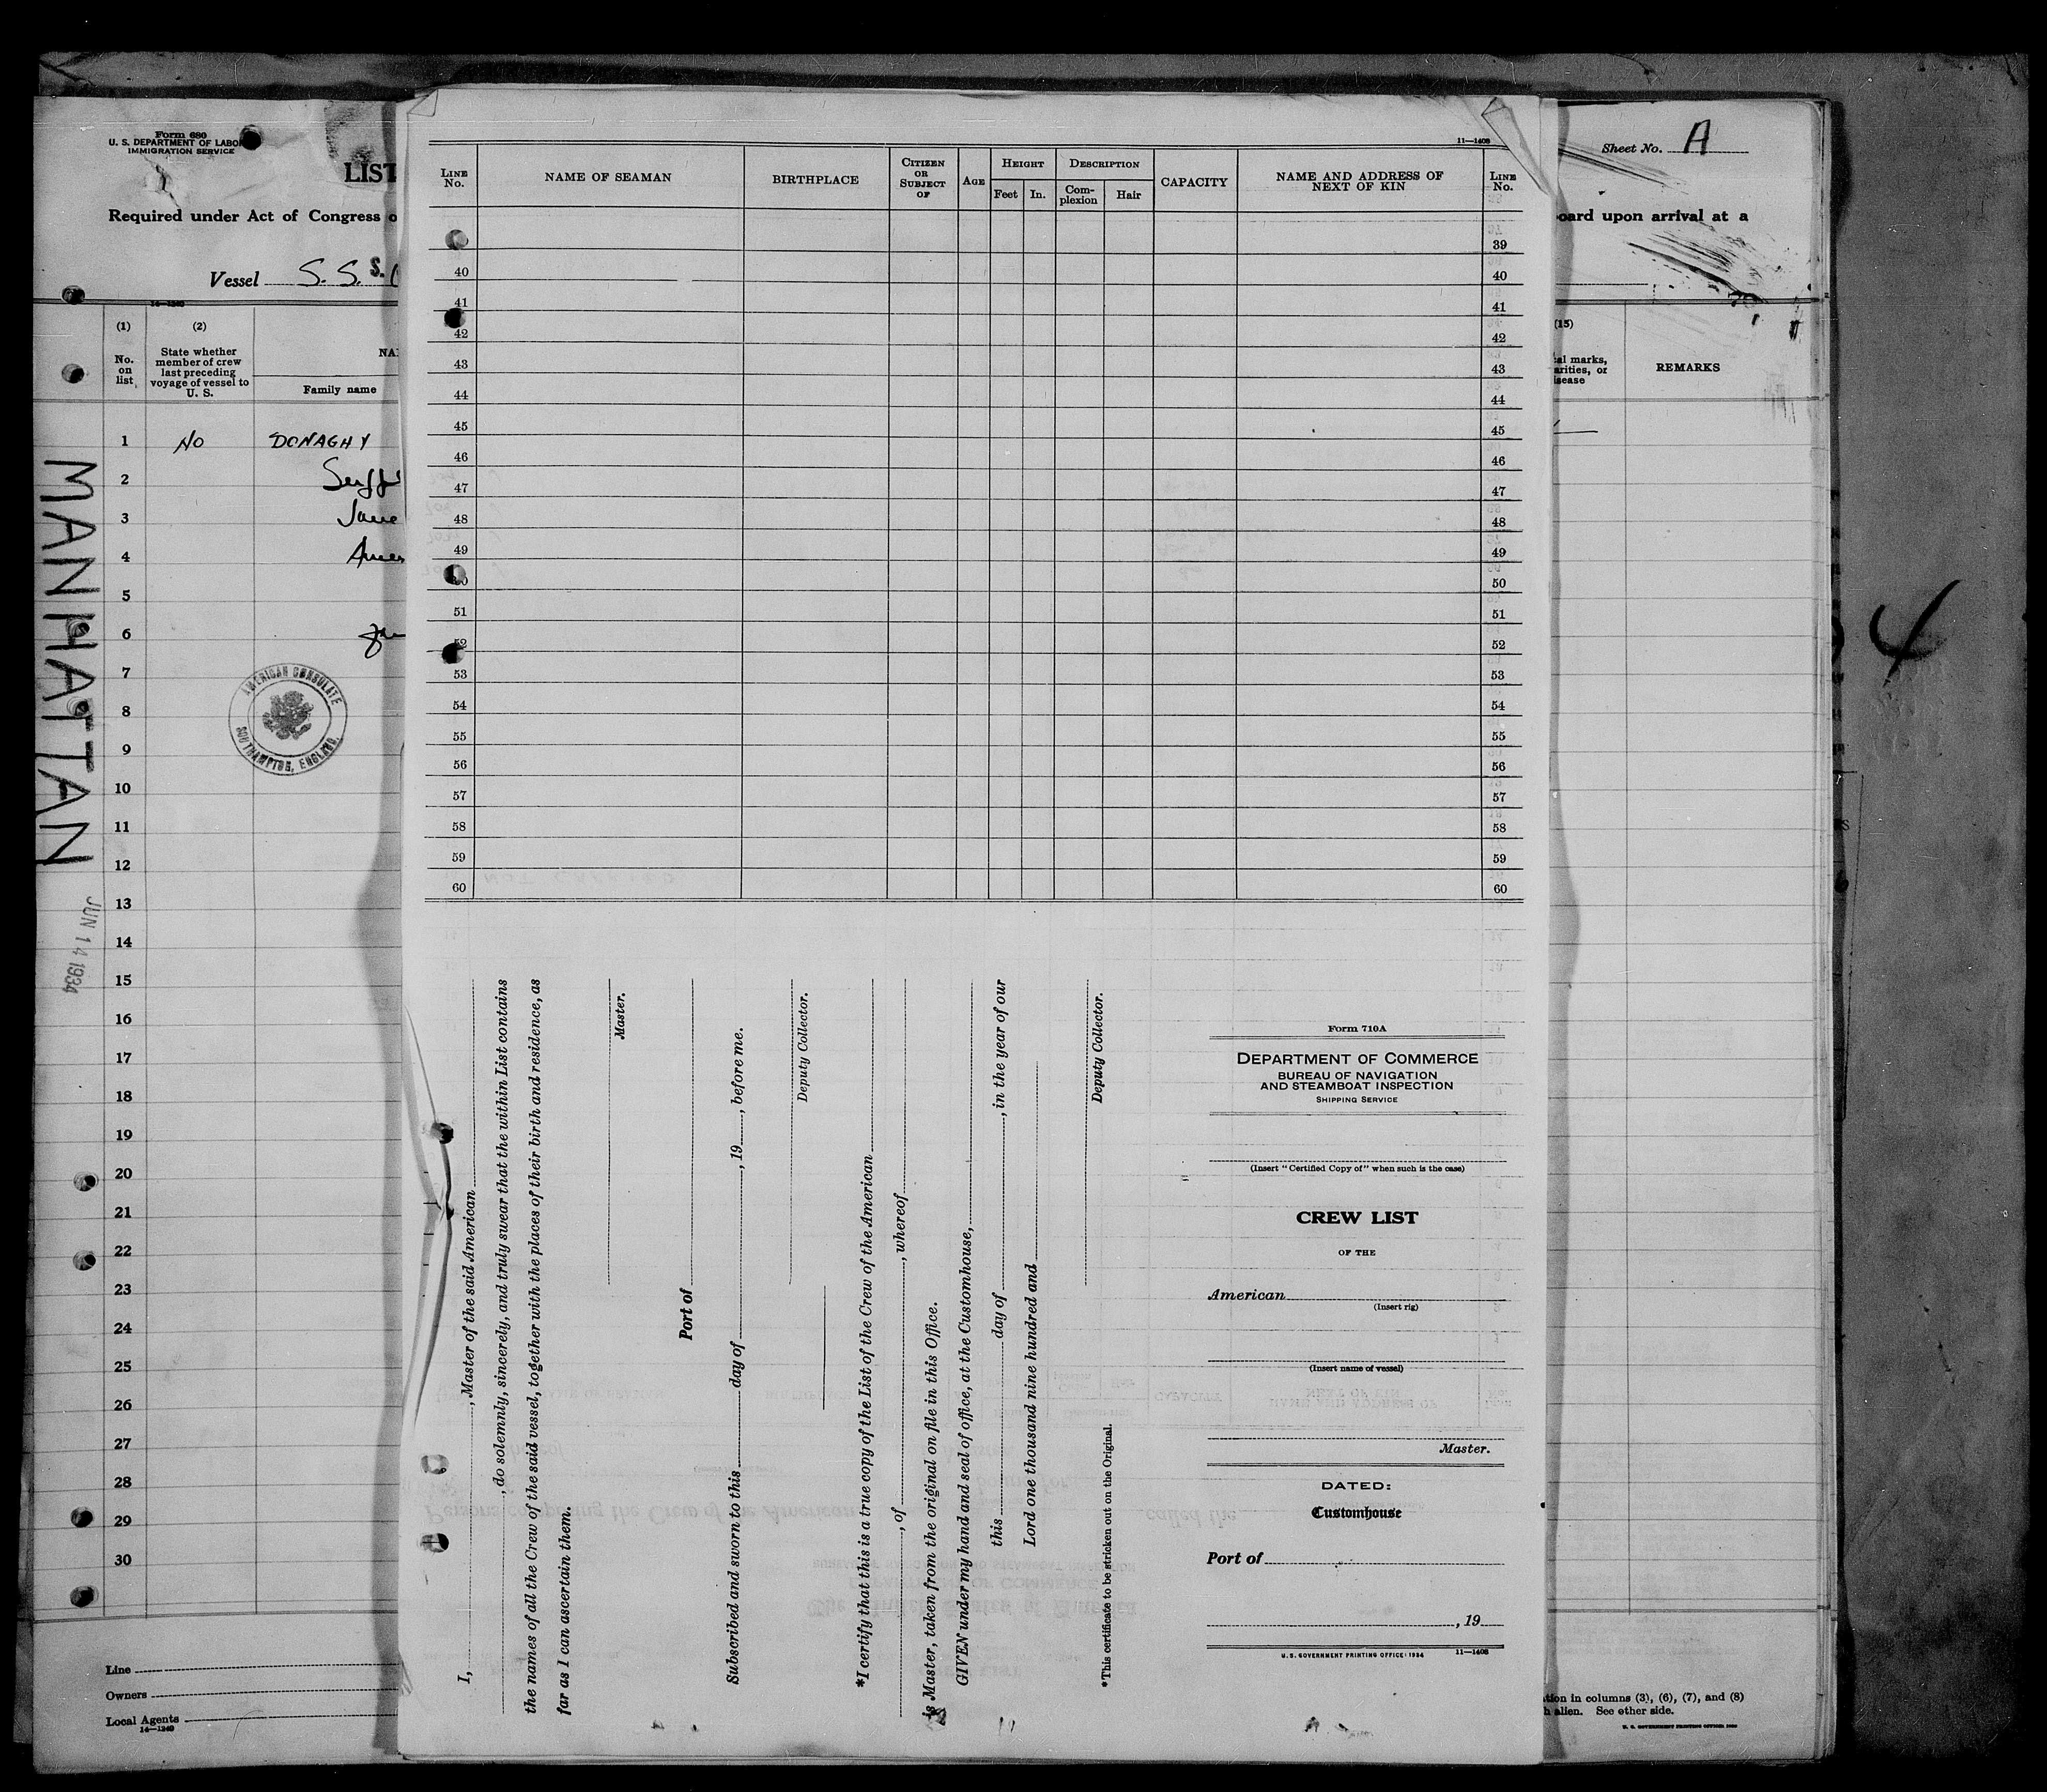 Form 680
U. S. DEPARTMENT OF LABO
IMMIGRATION SERVICE
LIST
Required under Act of Congress o
Vessel S. S.
14—1240
(1)
No.
on
list
(2)
State whether
member of crew
last preceding
voyage of vessel to
U. S.
NA
Family name
1 NO DONAGHY
2
3
4
5
6
7
8
9
10
11
12
13
14
15
16
17
18
19
20
21
22
23
24
25
26
27
28
29
30
MANHATTAN
JUN 14 1934
AMERICAN CONSULATE
SOUTHAMPTON, ENGLAND.
Line
Owners
Local Agents
14—1240
11—1408
LINE
No.
NAME OF SEAMAN
BIRTHPLACE
CITIZEN
OR
SUBJECT
OF
AGE
HEIGHT
Feet In.
DESCRIPTION
Com-
plexion
Hair
CAPACITY
NAME AND ADDRESS OF
NEXT OF KIN
LINE
No.
39
40 40
41 41
42 42
43 43
44 44
45 45
46 46
47 47
48 48
49 49
50
51 51
52 52
53 53
54 54
55 55
56 56
57 57
58 58
59 59
60 60
I, , Master of the said American
, do solemnly, sincerely, and truly swear that the within List contains
the names of all the Crew of the said vessel, together with the places of their birth and residence, as
far as I can ascertain them.
Master.
Port of
Subscribed and sworn to this day of , 19 , before me.
Deputy Collector.
*I certify that this is a true copy of the List of the Crew of the American
, of , whereof
is Master, taken from the original on file in this Office.
GIVEN under my hand and seal of office, at the Customhouse,
this day of , in the year of our
Lord one thousand nine hundred and
Deputy Collector.
*This certificate to be stricken out on the Original.
Form 710A
DEPARTMENT OF COMMERCE
BUREAU OF NAVIGATION
AND STEAMBOAT INSPECTION
SHIPPING SERVICE
(Insert "Certified Copy of" when such is the case)
CREW LIST
OF THE
American
(Insert rig)
(Insert name of vessel)
Master.
DATED:
Customhouse
Port of
, 19
U. S. GOVERNMENT PRINTING OFFICE: 1934 11—1408
Sheet No. A
oard upon arrival at a
(15)
al marks,
arities, or
isease
REMARKS
4
tion in columns (3), (6), (7), and (8)
h alien. See other side.